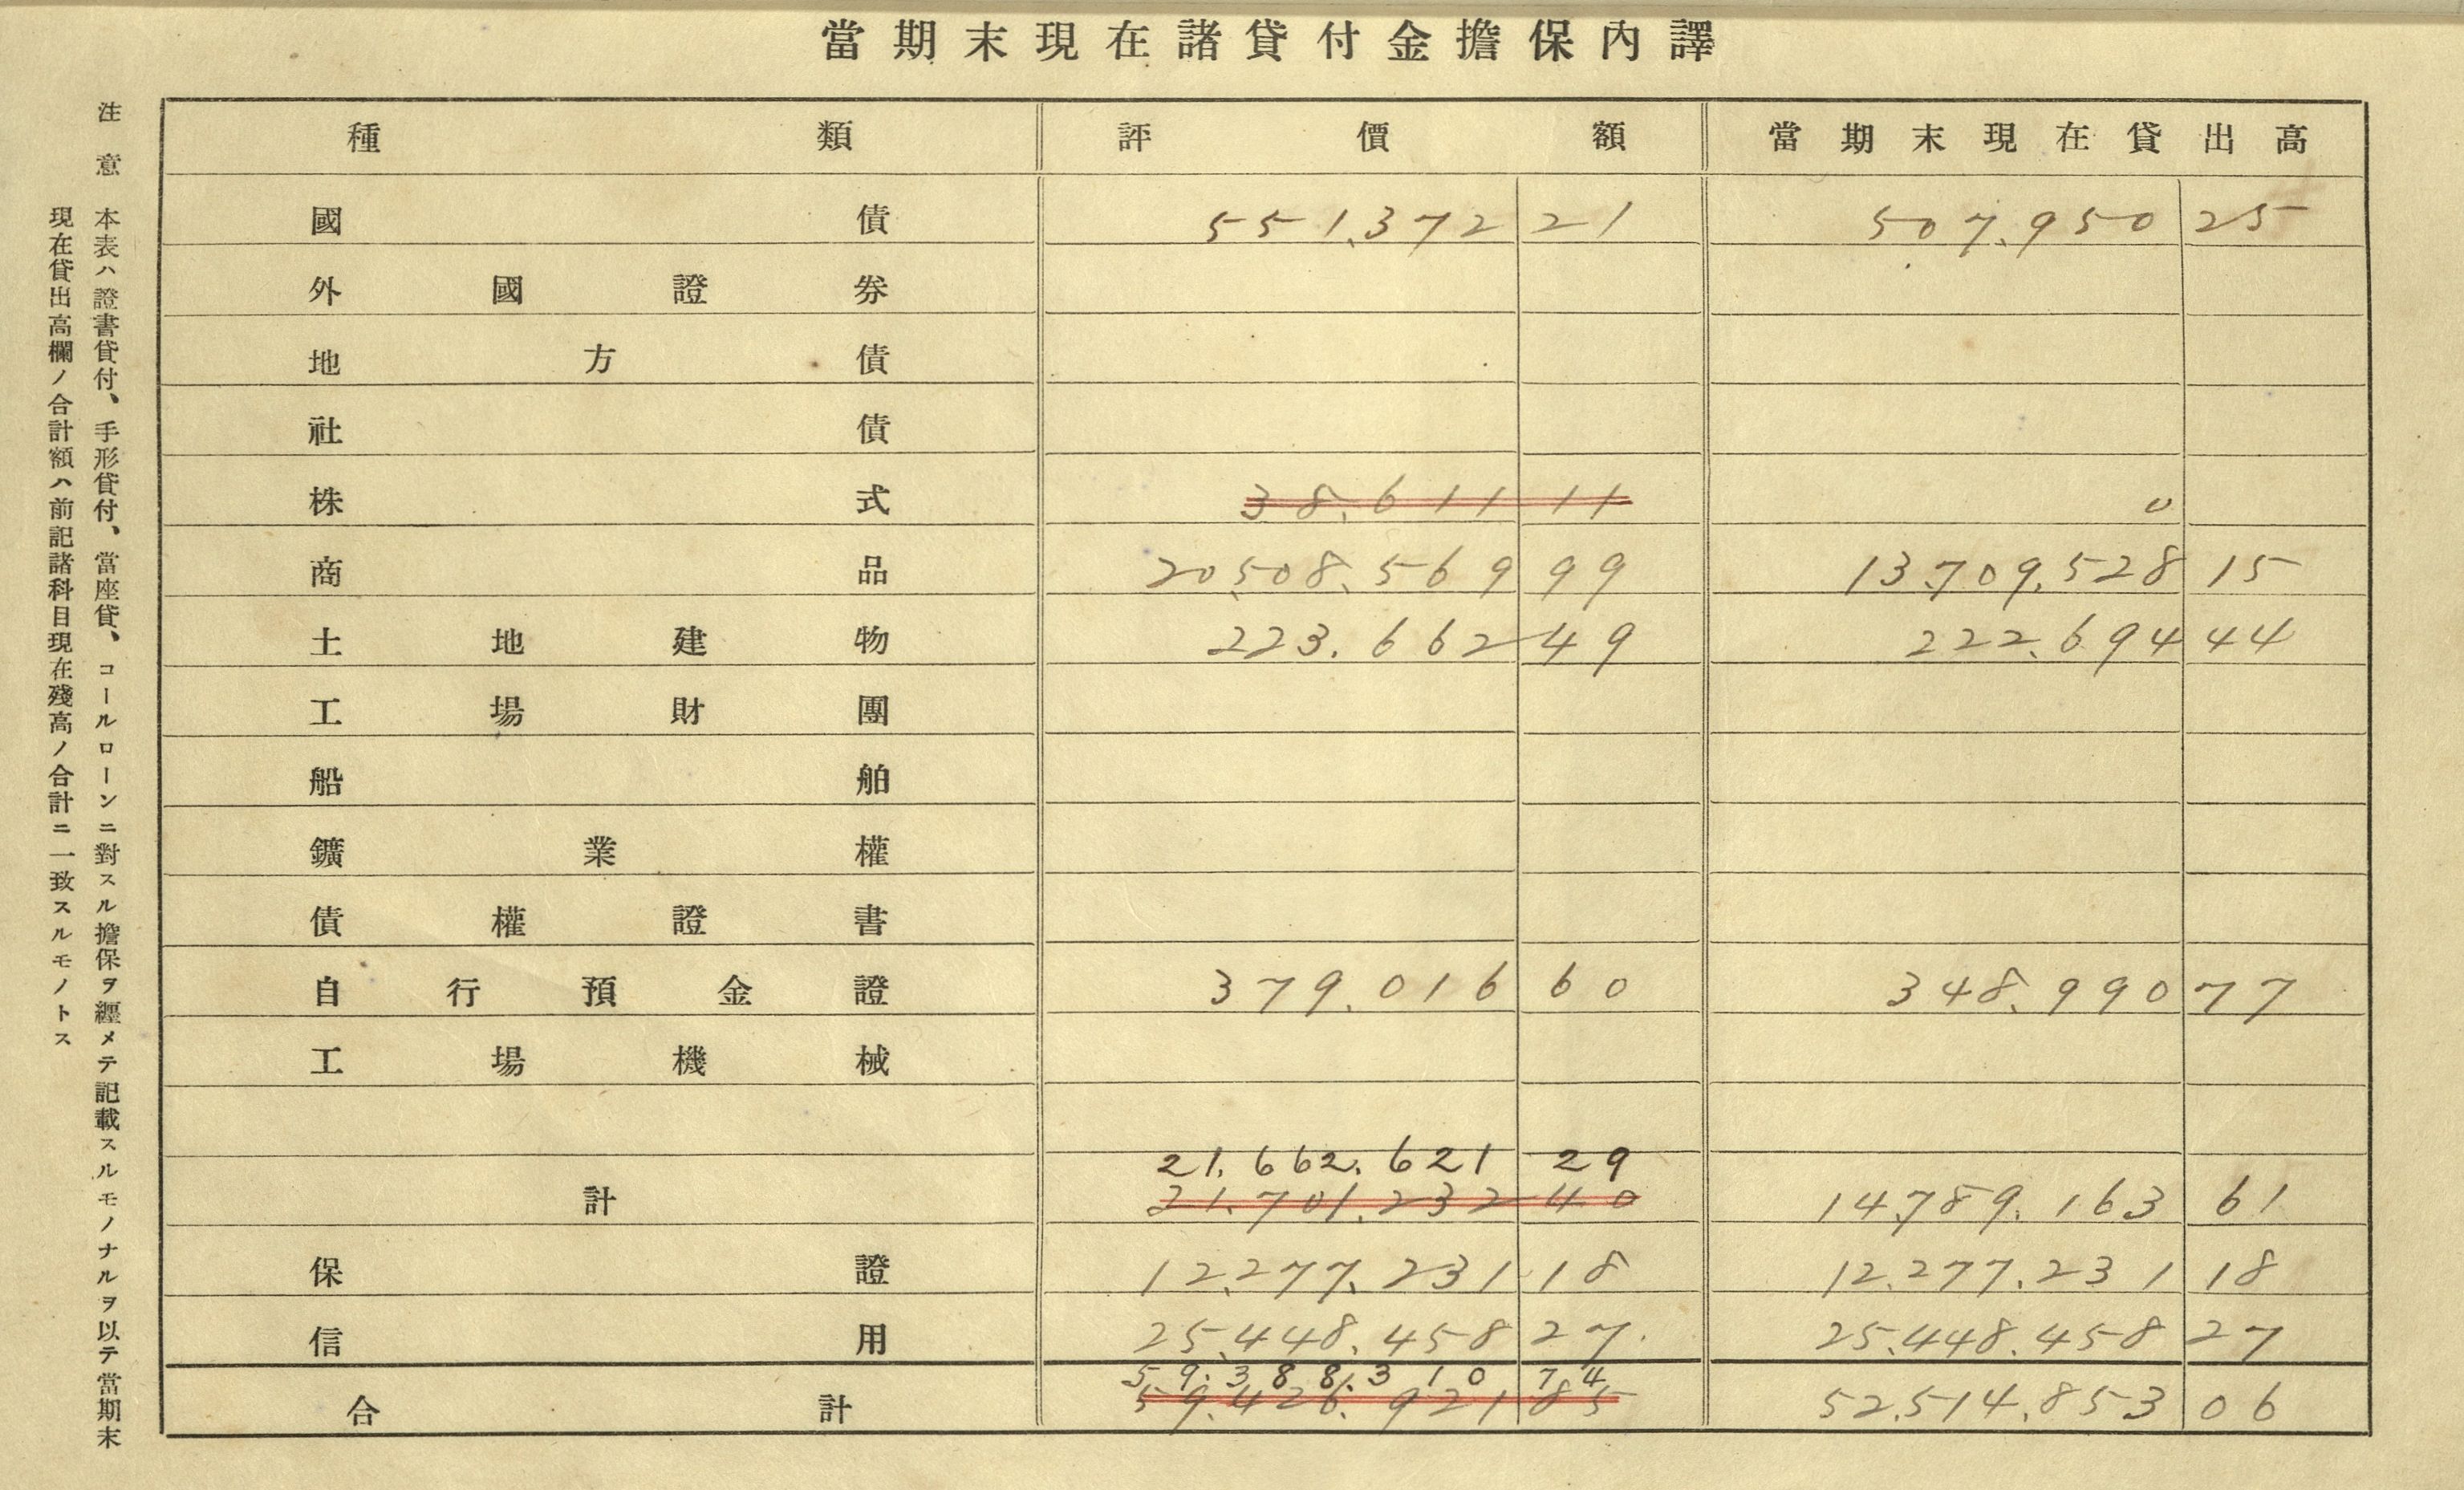 當期末現在諸貸付金擔保內譯
種類 評價額 當期末現在貸出高
國債 551.372 21 507.950 25
外國證券
地方債
社債
株式 38.611 11 0
商品 20.508.569 99 13.709.528 15
土地建物 223.662 49 222.694 44
工場財團
船舶
鑛業權
債權證書
自行預金證 379.016 60 348.990 77
工場機械
21.662.621 29
計 21.701.232 40 14.789.163 61
保證 12.277.231 18 12.277.231 18
信用 25.448.458 27. 25.448.458 27
59.388.310 74
合計 59.426.921 85 52.514.853 06
注意 本表ハ證書貸付、手形貸付、當座貸、コールローンニ對スル擔保ヲ纒メテ記載スルモノナルヲ以テ當期末
現在貸出高欄ノ合計額ハ前記諸科目現在殘高ノ合計ニ一致スルモノトス